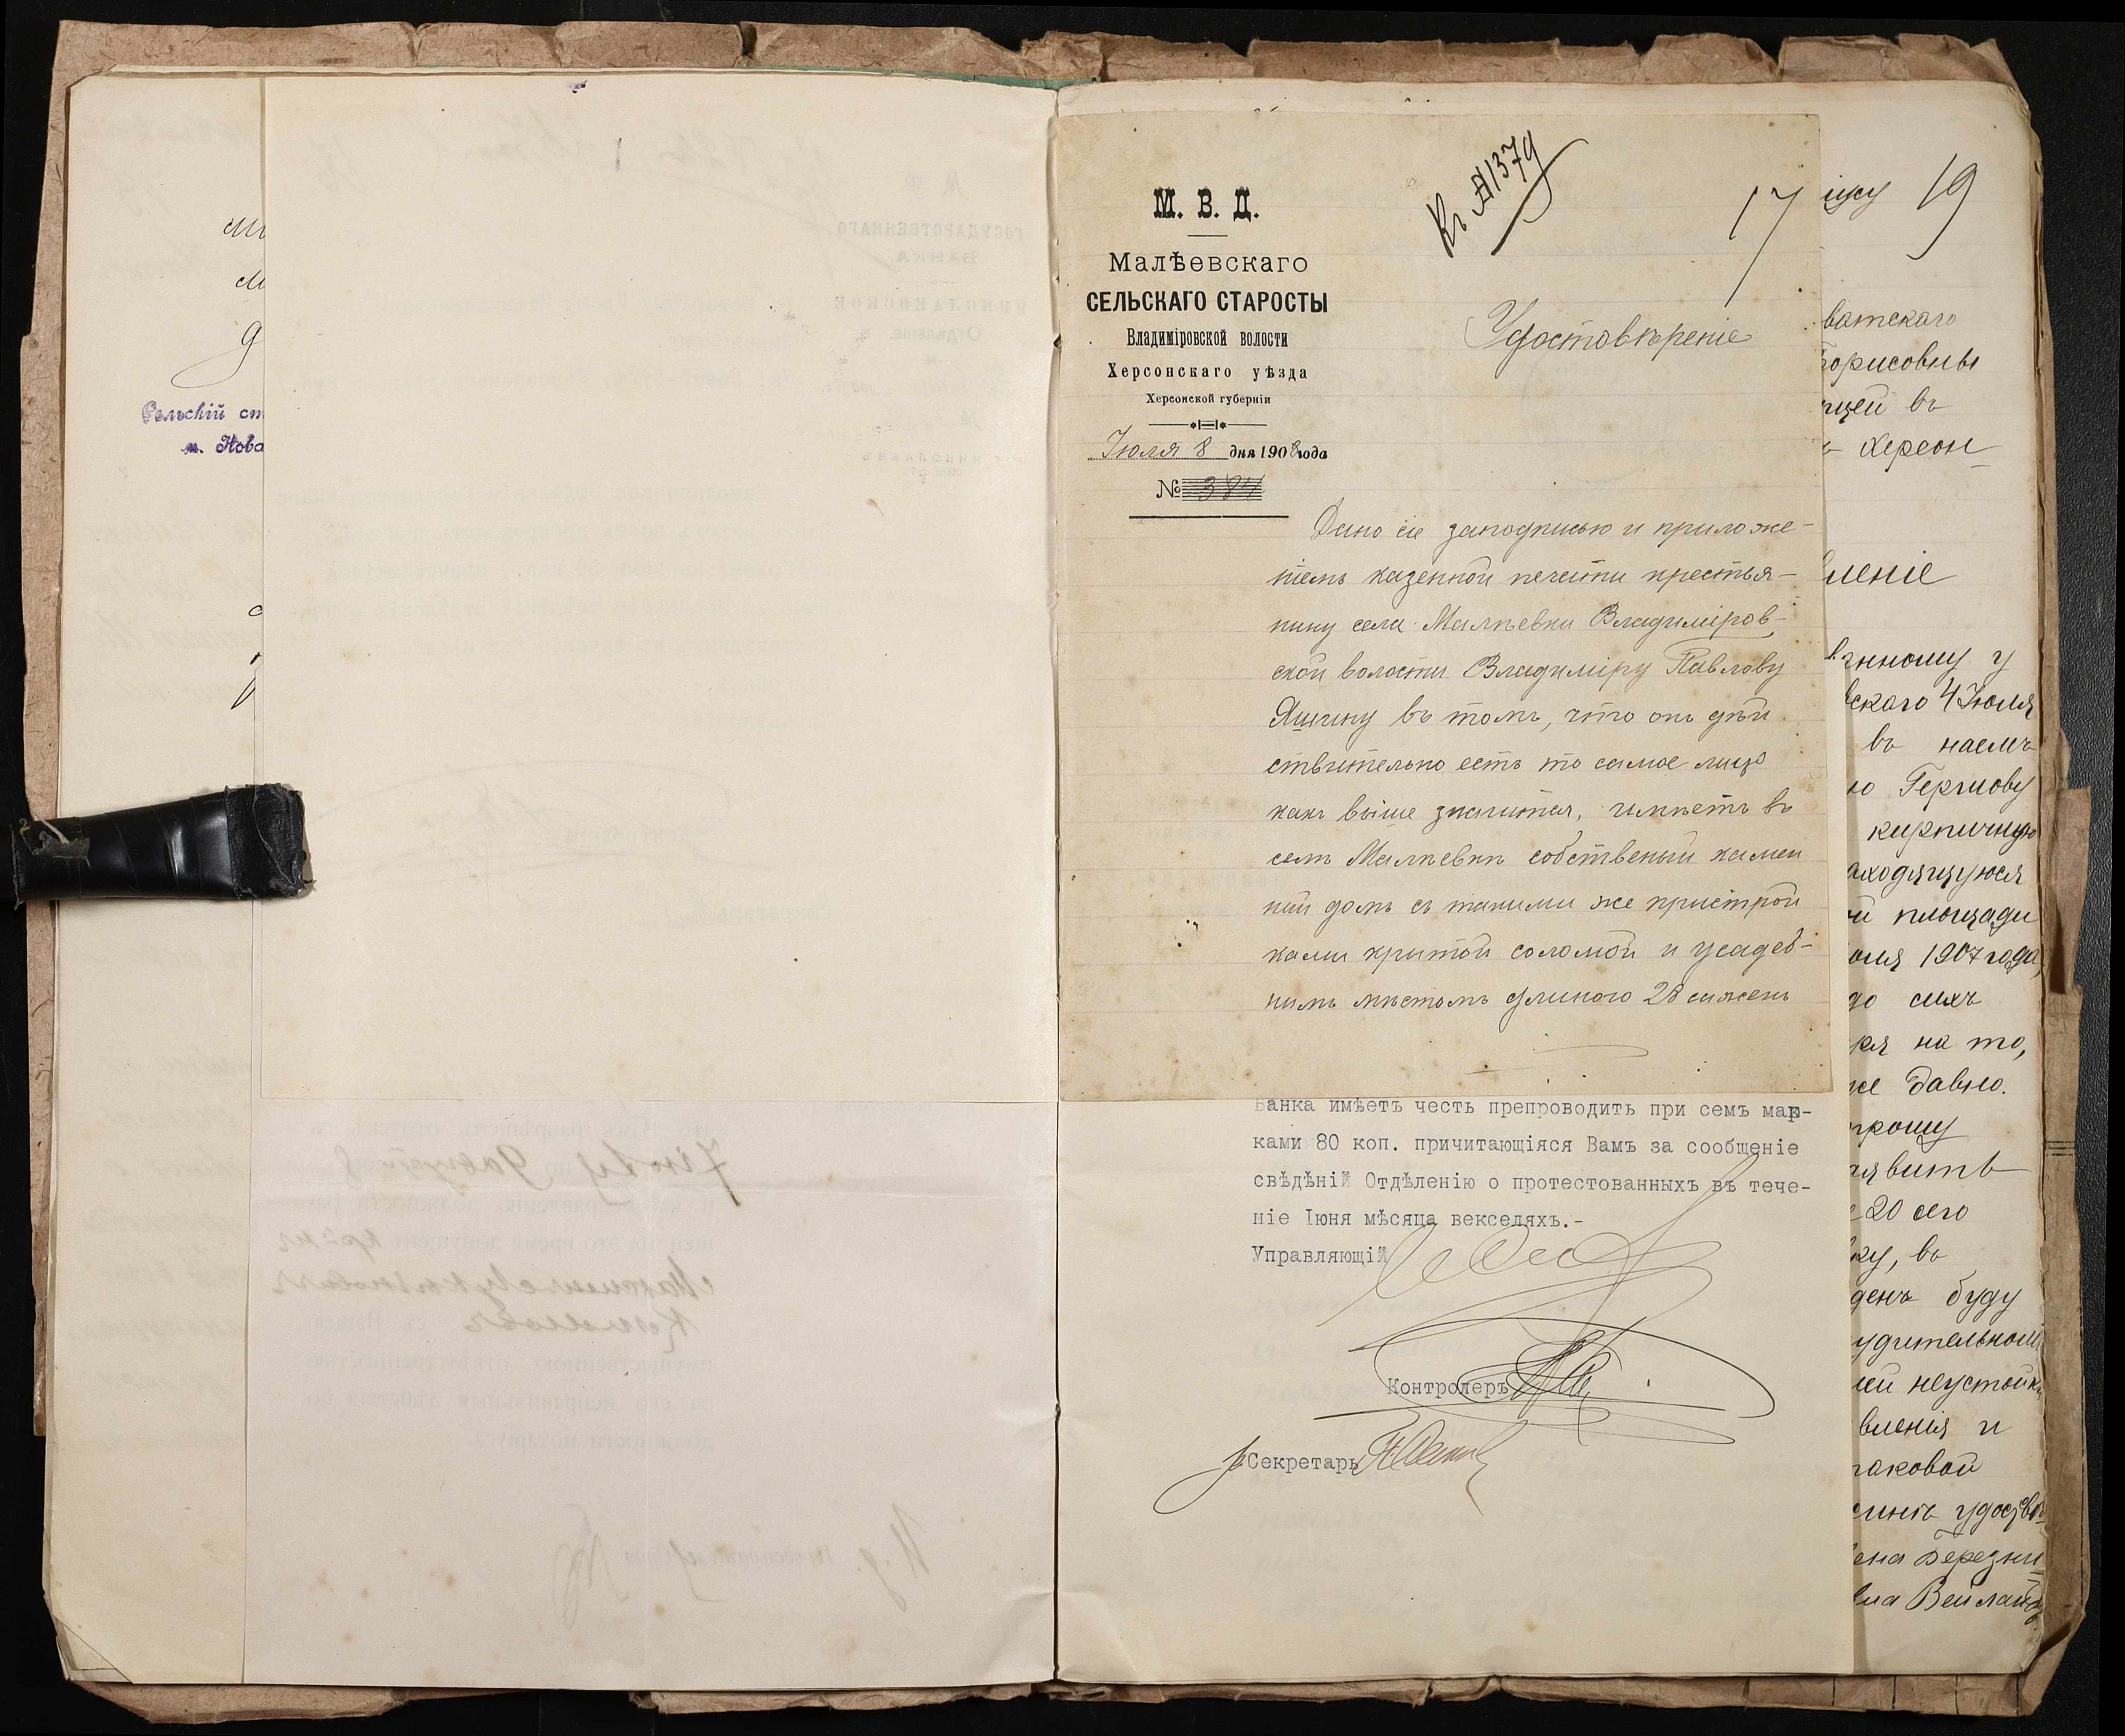 Сельскій ст
м. Нова
Къ №1379
17
М. В. Д.
Малѣевскаго
СЕЛЬСКАГО СТАРОСТЫ
Владиміровской волости
Херсонскаго уѣзда
Херсонской губерніи
Іюля 8 дня 1908 года
№ 384
Удостовѣреніе
Дано сіе заподписью и приложе-
ніемъ казенной печати крестья-
нину села Малѣевки Владиміров-
ской волости Владиміру Павлову
Яшину въ томъ, что онъ дѣй
ствительно есть то самое лицо
какъ выше значится, имѣетъ въ
селѣ Малѣевкѣ собственый камен
ний домъ съ такими же пристрой
ками критой соломой и усадеб-
нимъ мѣстомъ длиного 28 сажень
Банка имѣетъ честь препроводить при семъ мар-
ками 80 коп. причитающіяся Вамъ за сообщеніе
свѣдѣній Отдѣленію о протестованныхъ въ тече-
ніе Іюня мѣсяца векселяхъ.-
Управляющій
Контролеръ
Секретарь
ищу 19
ватскаго
Борисовны
щей въ
Херсон
леніе
енному у
вскаго 4 Іюля
въ наемъ
ю Гершову
кирпичную
аходящуюся
й площади
юля 1907 года,
до сихъ
ря на то,
же давно.
прошу
аявить
20 сего
ку, въ
день буду
удительной
ей неустойки
вленія и
таковой
ена Березни
вна Вейланд